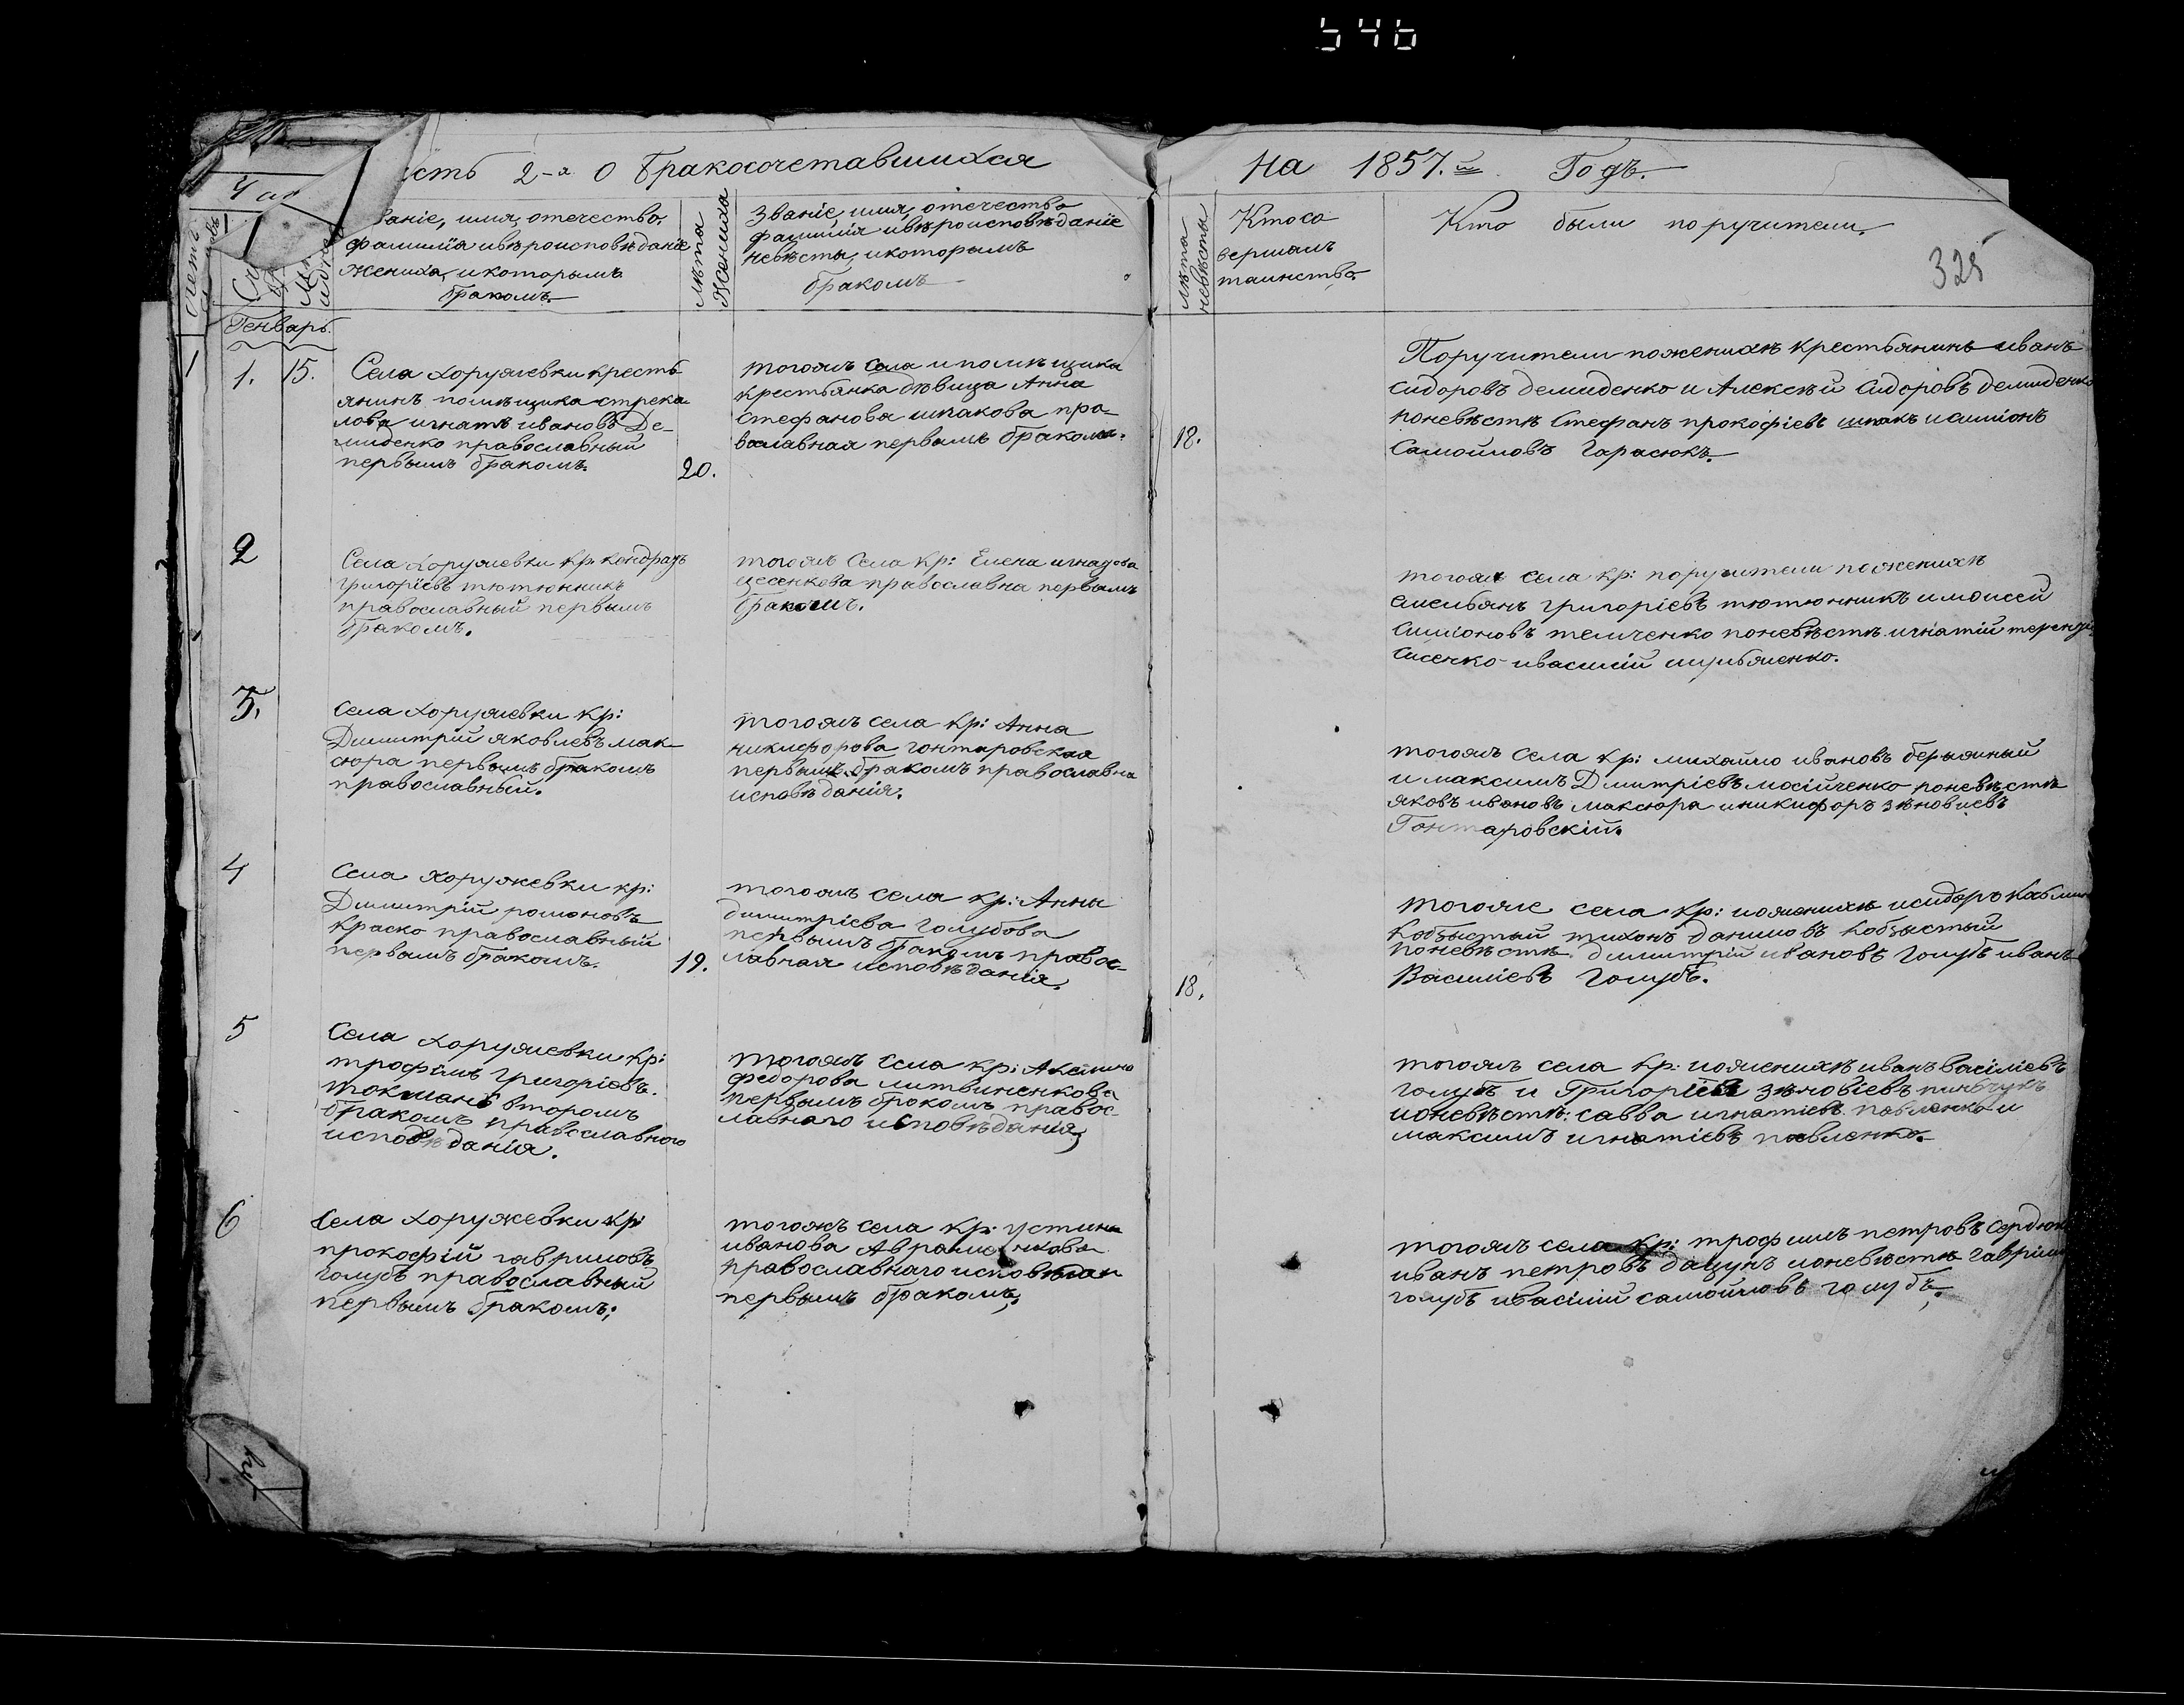 546
сть 2-я О бракосочетавшихся
На 1857.й Годъ.
Час
званіе, имя, отечество,
фамилія и вѣроисповѣданіе
жениха, и которымъ
бракомъ.
лѣта
Жениха
Званіе, имя, отечество
фамилія и вѣроисповѣданіе
невѣсты, и которымъ
бракомъ
лѣта
невѣсты
Кто со
вершалъ
таинство
Кто были поручители.
325
Генварь.
1
1. 15.
Села Хоружевки кресть
янинъ помѣщика стрека
лова игнатъ ивановъ Де-
миденко православный
первымъ бракомъ.
20.
тогожъ села и помѣщика
крестьянка дѣвица Анна
Стефанова шпакова пра-
вославная первымъ бракомъ.
18.
Поручители по женихѣ крестьянинъ иванъ
сидоровъ демиденко и Алексѣй Сидоровъ демиденко
по невѣстѣ Стефанъ прокофіевъ шпакъ и симіонъ
Самойловъ Гарасюкъ.
2
Села Хоружевки кр. кондратъ
григоріевъ тютюнникъ
православный первымъ
бракомъ.
тогожъ Села кр: Елена
православна первымъ
бракомъ.
тогожъ села кр: поручители по женихѣ
емельянъ григоріевъ тютюнникъ и моисей
Симіоновъ темченко по невѣстѣ игнатій
и василій
3.
Села Хоружевки кр:
Димитрій яковлевъ мак-
сюра первымъ бракомъ
православный.
тогожъ села кр: Анна
никифорова гонтаровская
первымъ бракомъ православна
исповѣданія.
тогожъ села кр: михайло ивановъ
и максимъ Дмитріевъ мосійченко по невѣстѣ
яковъ ивановъ максюра и никифоръ зѣновиевъ
Гонтаровскій.
4
Села Хоружевки кр:
Димитрій романовъ
краско православный
первымъ бракомъ.
19.
тогожъ села кр: Анна
димитріева голубова
первымъ бракомъ правос-
лавная исповѣданія.
18.
тогоже села кр: по женихѣ исидоръ
кобзыстый тихонъ даниловъ кобзыстый
по невѣстѣ димитрій ивановъ голубъ иванъ
Василіевъ голубъ.
5
Села Хоружевки кр:
трофимъ григоріевъ.
токмань вторымъ
бракомъ православного
исповѣданія.
тогожъ села кр: Акилина
федорова литвиненкова
первымъ бракомъ правос-
лавного исповѣданія
тогожъ села кр: по женихѣ иванъ васіліевъ
голубъ и Григоріевъ зѣновіевъ пинчукъ
по невѣстѣ: савва игнатіевъ павленко и
максимъ игнатіевъ павленко.
6
Села Хоружевки кр:
прокофій гавриловъ
голубъ православный
первымъ бракомъ;
тогожъ села кр: устина
иванова Авраменкова
православнаго исповѣдан
первымъ бракомъ;
тогожъ села кр: трофимъ петровъ сердюкъ
иванъ петровъ дацунъ по невѣстѣ гаврило
голубъ и василій самойловъ голубъ.